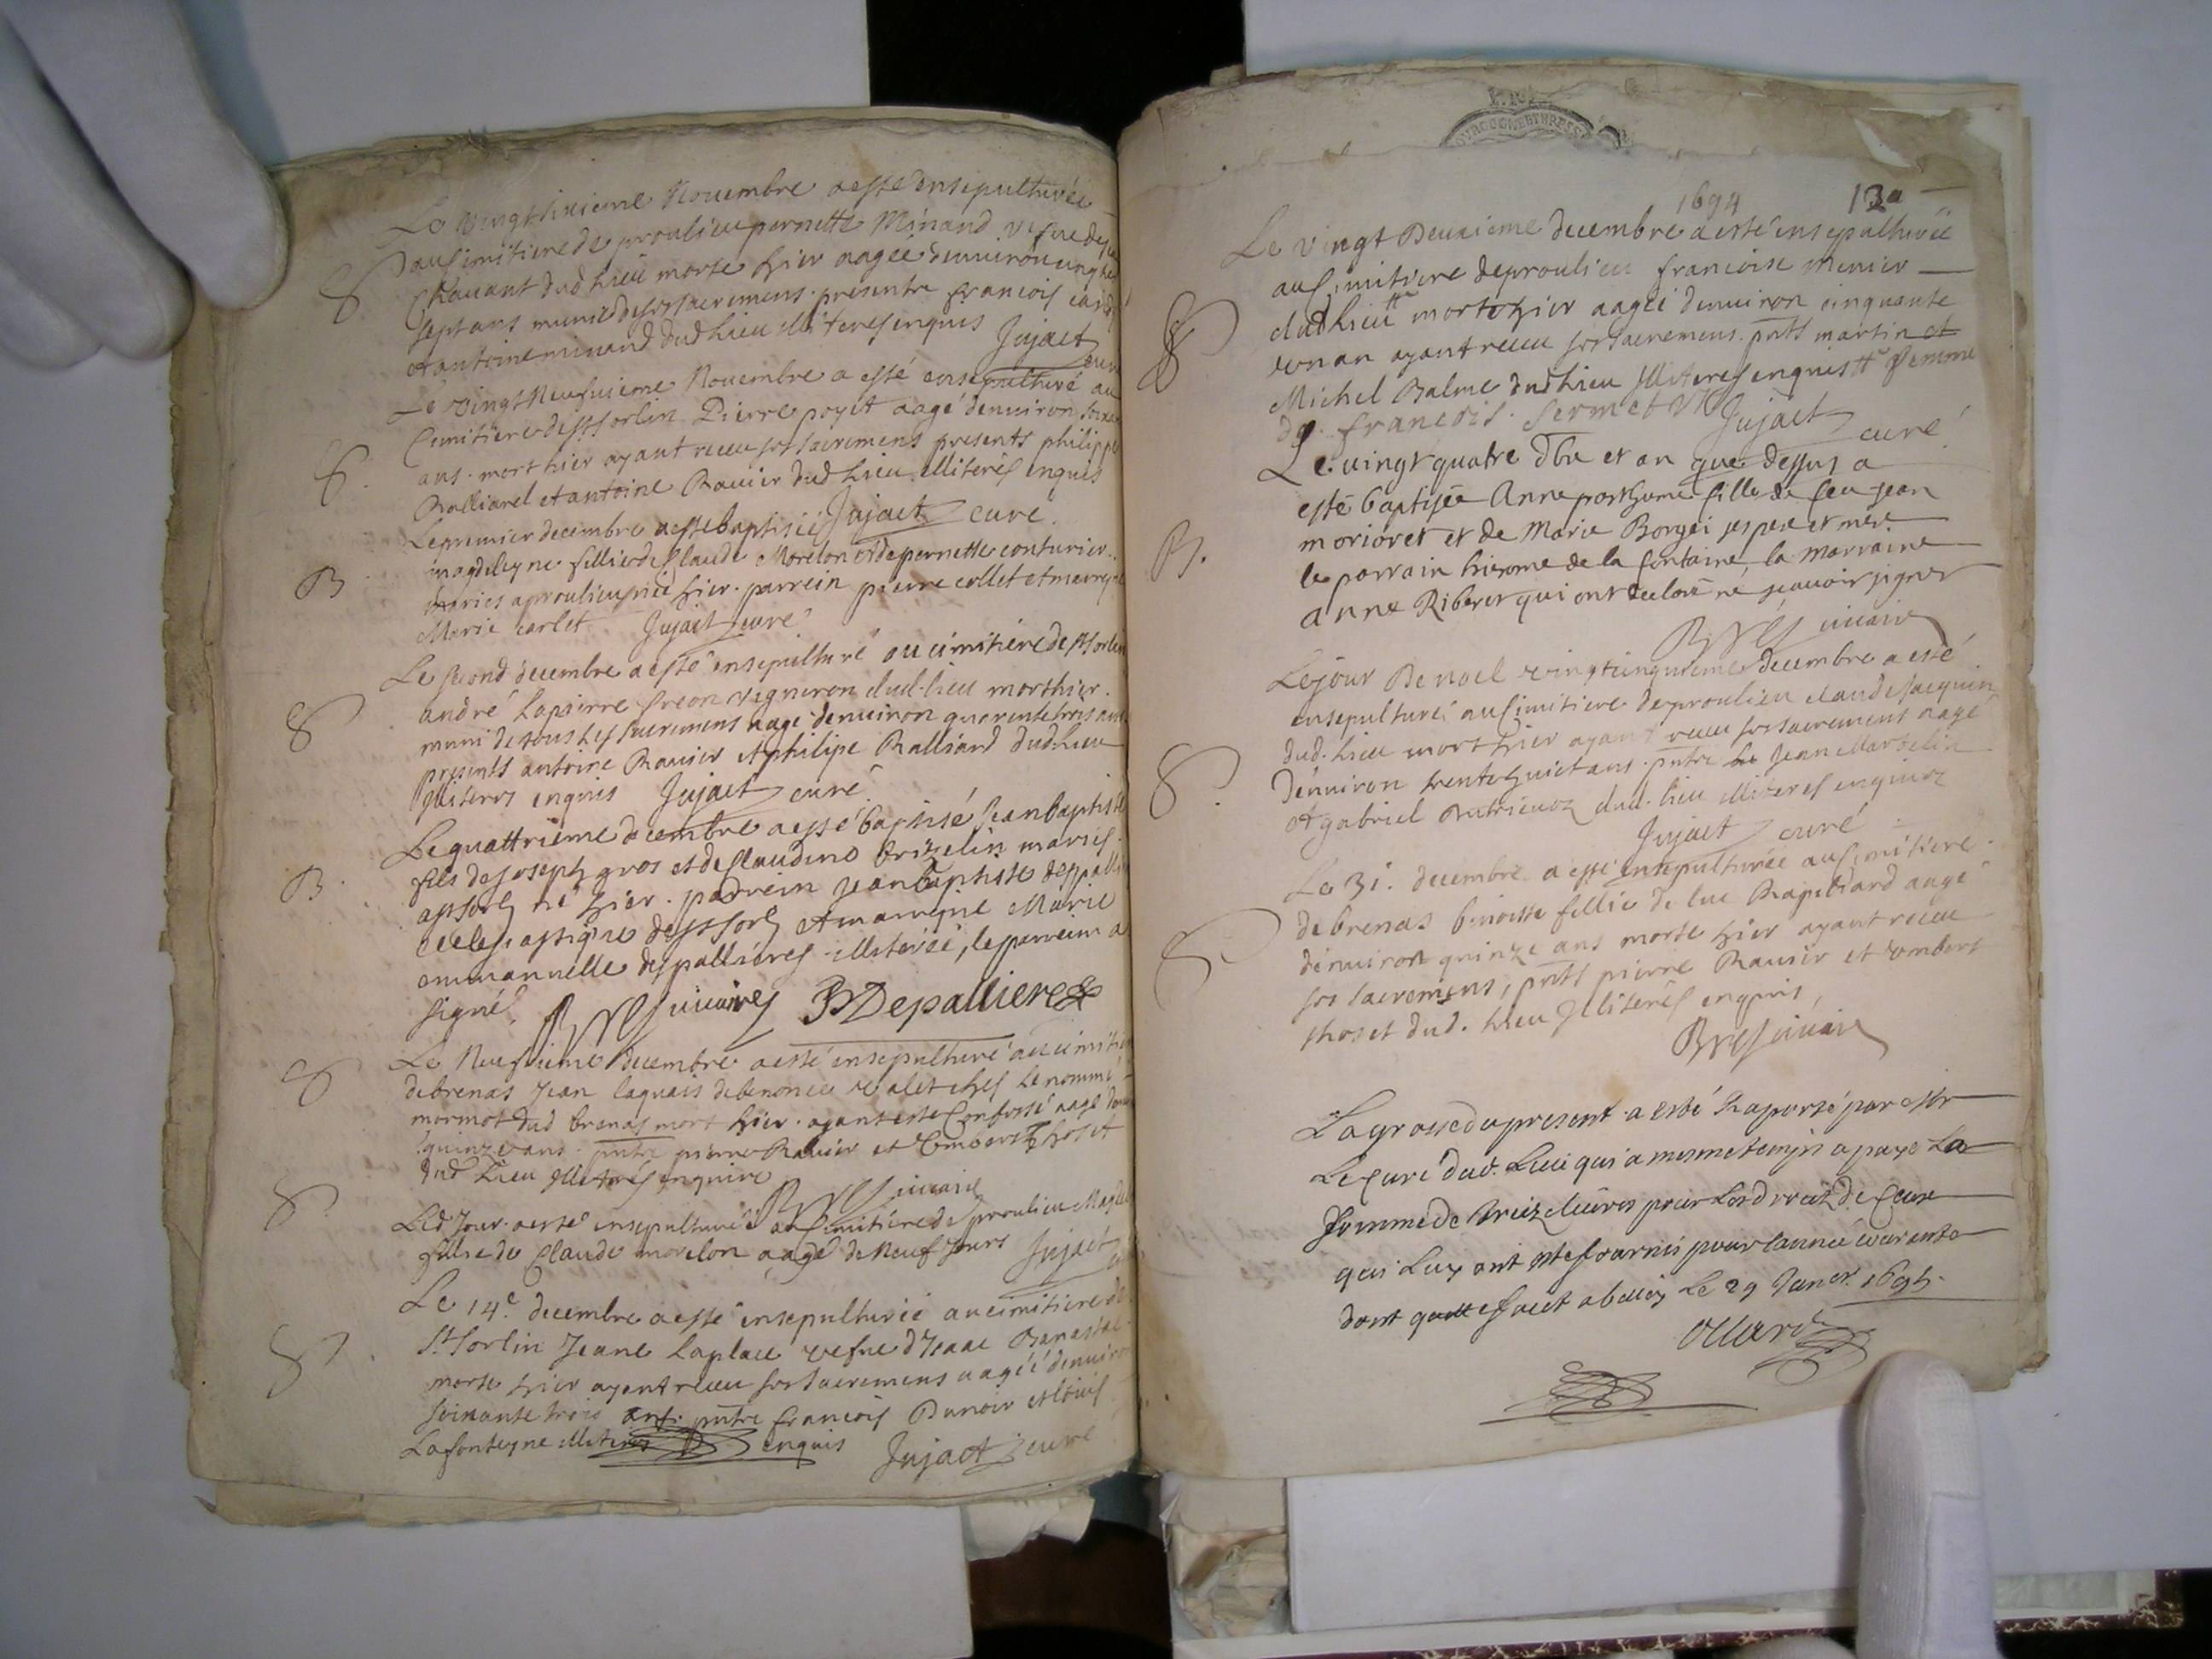 Le vingt sixieme Novembre a esté ensepulturée
S au cimitiere de proulieu pernette Minand vefve de
Ravant dud lieu morte hier aagée denuiron cinq
sept ans munie de ses sacremens. presente francois
et antoine minand dud lieu illiteres enquis Jujact curé
Le vingt Neufuieme Novembre a esté ensepulturé au
S. Cimitiere de st sorlin Pierre poyet aagé denuiron
ans. mort hier ayant receu ses sacremens presents philippe
Ralliarel et antoine Rauier dud lieu illiterés enquis
Jujact curé.
Le premier decembre a esté baptisée
B magdeleyne fillie de Claude Morelon et de pernette couturier
maries a proulieu née hier. parrein pierre collet et marreyne
Marie carlet Jujact curé
Le second decembre a esté ensepulturé au cimitiere de st sorlin
S andré Lapierre vigneron dud. lieu mort hier.
muni de tous les sacremens aagé denuiron quarente trois ans
presents antoine Rauier et philipe Ralliard dud lieu
illiteres enquis Jujact curé
Le quattrieme decembre a esté baptisé Jean baptiste
B. fils de Joseph gros et de Claudine brizelin maries
a st sorl né hier. parrein Jean baptiste
de st sorl et marreyne Marie
emmanuelle despallieres illiterée, le parrein a
signé. vicaire Depallieres
Le Neufuieme decembre a esté ensepulturé au cimitiere
S de brenas Jean laquais de benonce valet ches le nommé
mormot dud brenas mort hier. ayant esté Confessé aagé
quinze ans. pntz pierre Rauier et Combert thoset
dud Lieu illiterés enquis
vicaire
S. Led Jour a esté ensepulturée au Cimitiere de proulieu
fillie de Claude morelon aagé de Neuf Jours Jujact
Le 14e. decembre a esté ensepulturée au cimitiere de
S. St. Sorlin Jeane Laplace vefve d'Isaac
morte hier ayant receu ses sacremens aagéé denuiron
soixante trois ans. pntz francois Dunoir et louis
Lafonteyne illiteres enquis Jujact curé
1694 130
Le vingt Deuxieme decembre a esté ensepulturée
au Cimitiere de proulieu francoise menier
S dud lieu # morte hier aagée denuiron cinquante
un an ayant receu ses sacremens. pnts martin et
Michel Balme dud lieu illiteres enquis # femme
de francois. sermet Jujact curé
Le vingt quatre dbre et an que dessus a
esté baptisée Anne posthume fille de feu Jean
B. morioret et de Marie Borgei ses pere et mere
le parrain hierome de la fontaine, la marraine
anne Riberet qui ont declaré ne scauoir signer
vicaire
Le jour De noel vingt cinquieme decembre a esté
ensepulturé au Cimitiere de proulieu claude Jacquin
S. dud. lieu mort hier ayant receu ses sacremens aagé
denuiron trente huict ans. pntz Jean Marcelin
et gabriel dud. lieu illiteres enquis
Jujact curé
Le 31. decembre a esté ensepulturée au Cimitiere
S de brenas benoiste fillie de luc Rapilliard aagé
denuiron quinze ans morte hier ayant receu
ses sacremens, pnts pierre Rauier et Combert
thoset dud. lieu Illiterés enquis,
vicaire
La grosse du present a esté Raporté par Mr
Le Curé dud. Lieu qui a mesme temps a payé La
somme de treize Liures pour Les droits de Ceux
qui Luy ont esté fournis pour l'année courante
dont quitte faict a belley Le 29 Janer. 1695.